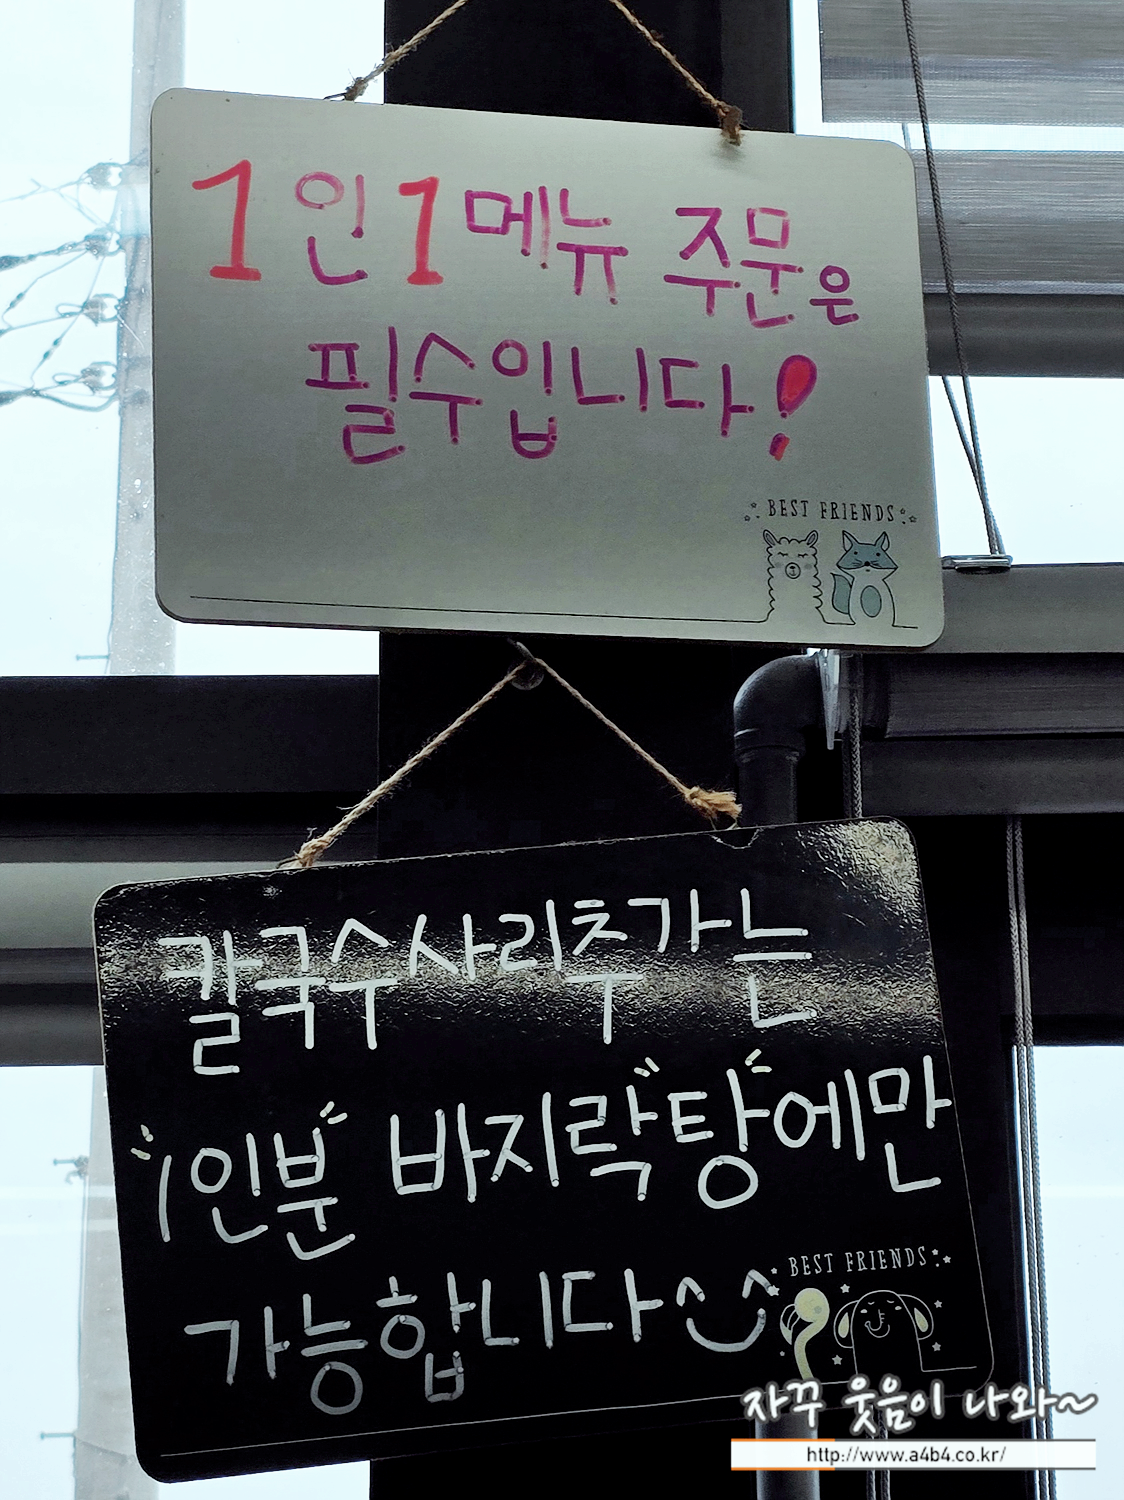 1인 1메뉴 주문은
필수입니다!
BEST FRIENDS
칼국수사리추가는
"1인분" 바지락"탕"에만
가능합니다^^
BEST FRIENDS
자꾸 웃음이 나와~
http://www.a4b4.co.kr/